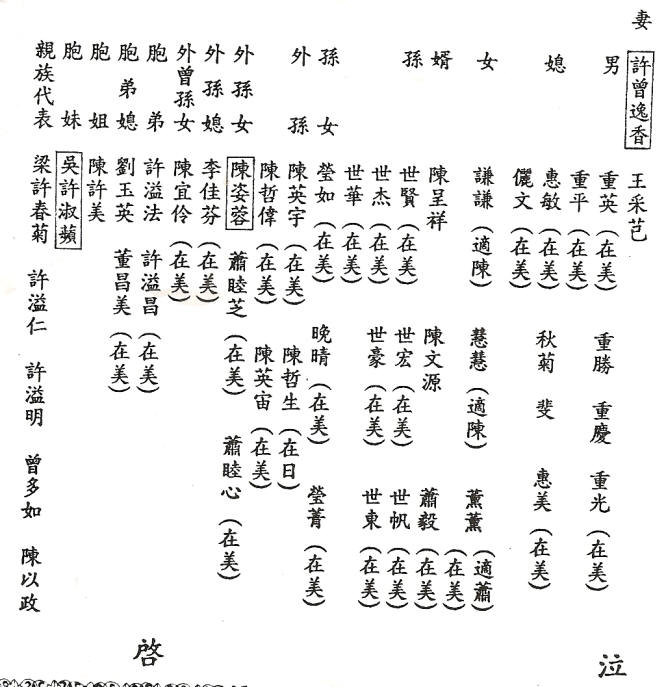 妻 許曾逸香 王采芑
男 重英(在美) 重勝 重慶 重光(在美)
重平(在美)
媳 惠敏(在美) 秋菊 斐 惠美(在美)
儷文(在美)
女 謙謙(適陳) 慧慧(適陳) 薰薰(適蕭)
(在美)
婿 陳呈祥 陳文源 蕭毅(在美)
孫 世賢(在美) 世宏(在美) 世帆(在美)
世杰(在美) 世豪(在美) 世東(在美)
世華(在美)
孫女 瑩如(在美) 晚晴(在美) 瑩菁(在美)
外孫 陳英宇(在美) 陳哲生(在日)
陳哲偉(在美) 陳英宙(在美)
外孫女 陳姿蓉 蕭睦芝(在美) 蕭睦心(在美)
外孫媳 李佳芬(在美)
外曾孫女 陳宜伶(在美)
胞弟 許溢法 許溢昌(在美)
胞弟媳 劉玉英 董昌美(在美)
胞姐 陳許美
胞妹 吳許淑蘋
親族代表 梁許春菊 許溢仁 許溢明 曾多如 陳以政
泣
啓